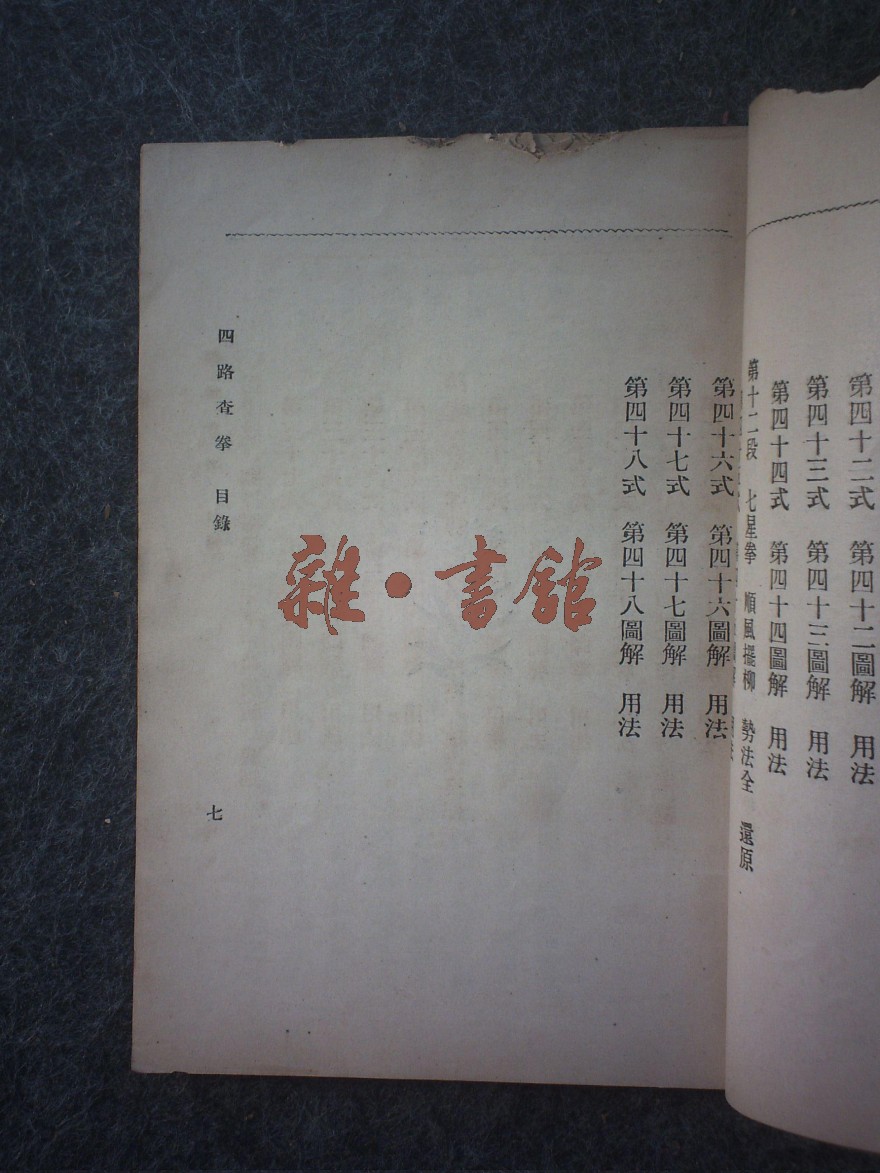 第四十二式　第四十二圖解　用法
第四十三式　第四十三圖解　用法
第四十四式　第四十四圖解　用法
第十二段　七星拳　順風擺柳　勢法全　還原
第四十六式　第四十六圖解　用法
第四十七式　第四十七圖解　用法
第四十八式　第四十八圖解　用法
四路查拳　目錄
七
雜・書館